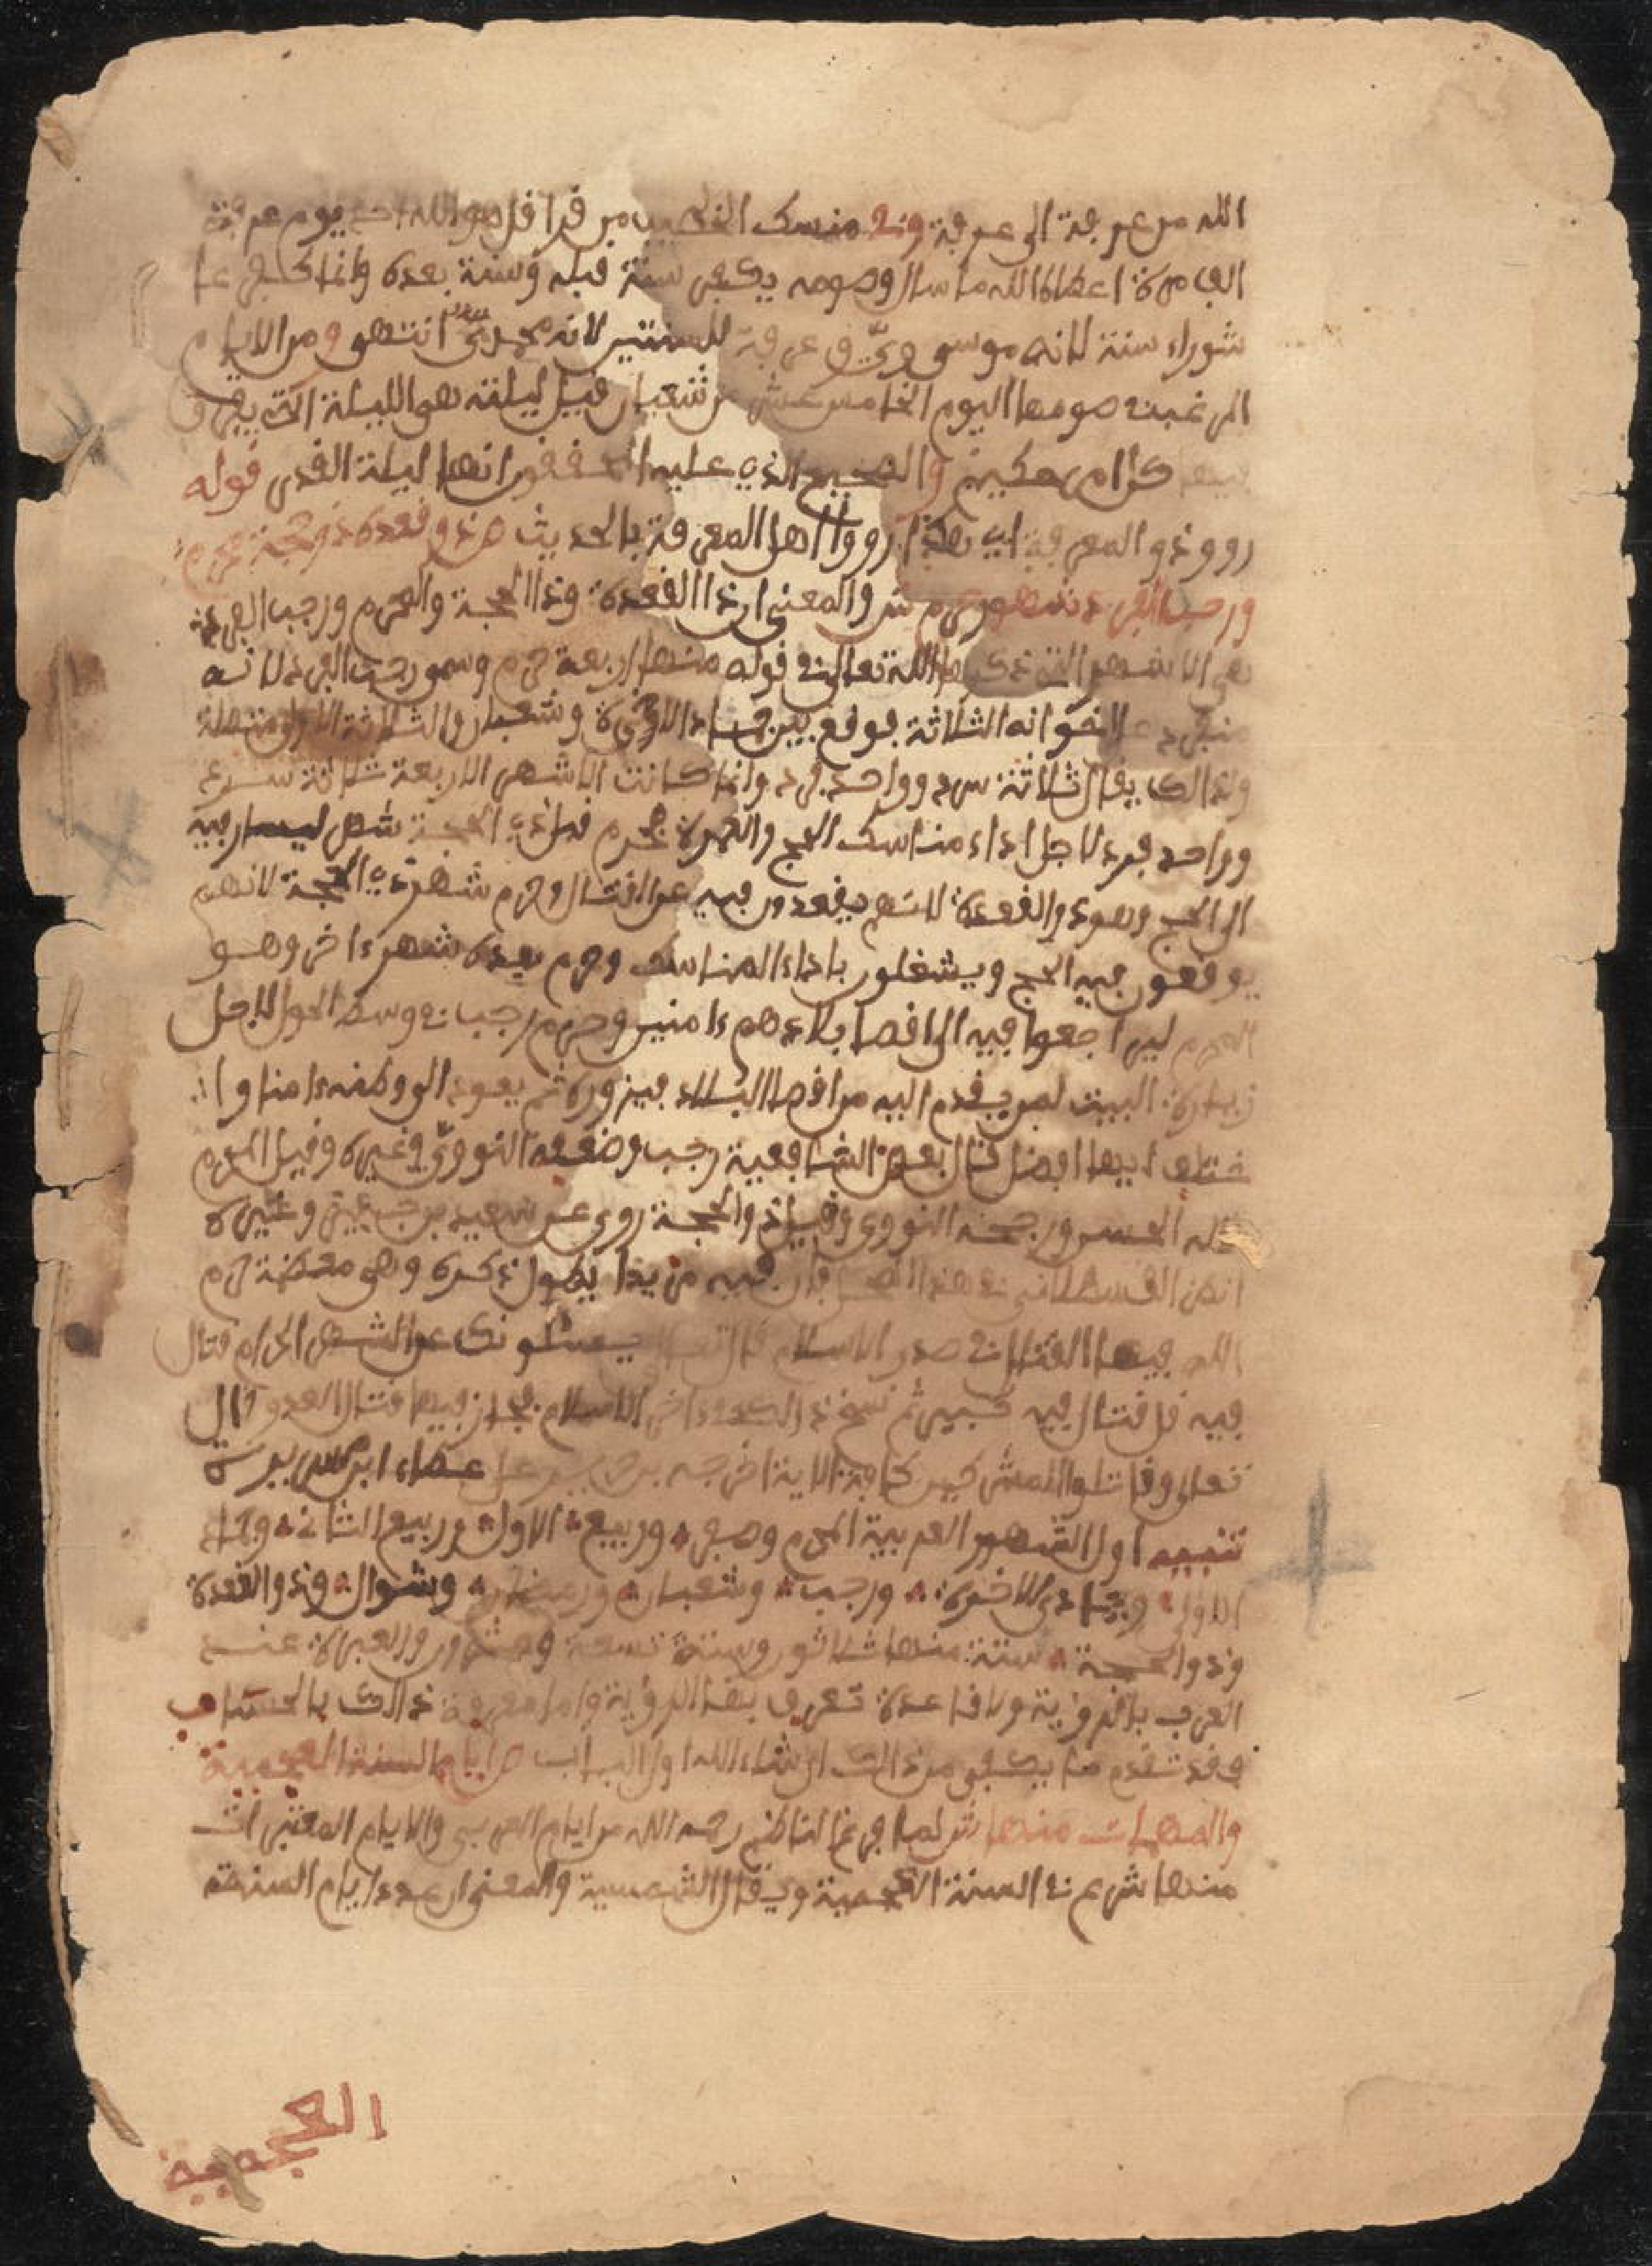 الله من عرفة الى عرفة وفي منسك الخطيب من قرا قل هو الله احد يوم عرفة
الف مرة اعطاه الله ما سال وصومه يكفر سنة قبله وسنة بعده وانما كفر عا
شوراء سنة لانه موسوي وعرفة للسنتين لانه محمدي انتهى ومن الايام
المرغب في صومها اليوم الخامس عشر من شعبان قيل ليلته هي الليلة التي يفرق
فيها كل امر حكيم والصحيح الذي عليه المحققون انها ليلة القدر قوله
رووا ذو المعرفة اي هكذا رووا اهل المعرفة بالحديث ص ذو قعدة ذو حجة محرم
ورجب الفرد شهور حرم ش والمعنى ان ذا القعدة وذا الحجة والمحرم ورجب الفرد
هي الاشهر التي ذكرها الله تعالى في قوله منها اربعة حرم وسمي رجب الفرد لانه
منفرد عن اخوانه الثلاثة فوقع بين جمادى الاخرة وشعبان والثلاثة الاول متصلة
ولذالك يقال ثلاثة سرد وواحد فرد وانما كانت الاشهر الاربعة ثلاثة سرد
وواحد فرد لاجل اداء مناسك الحج والعمرة فحرم قبل ذي الحجة شهر ليسار فيه
الى الحج وهو ذو القعدة لانهم يقعدون فيه عن القتال وحرم شهر ذي الحجة لانهم
يوقعون فيه الحج ويشغلون باداء المناسك وحرم بعده شهر ءاخر وهو
المحرم ليراجعوا فيه الى اقصا بلادهم ءامنين وحرم رجب في وسط الحول لاجل
زيارة البيت لمن يقدم اليه من اقصا البلاد فيزوره ثم يعود الى وطنه ءامنا وا
ختلف ايها افضل قال بعض الشافعية رجب وضعفه النووي وغيره وقيل المحرم
قاله الحسن ورجحه النووي وقيل ذو الحجة روي عن سعيد بن جبير وغيره
انظر القسطلاني في هذا المحل فان فيه مزيدا يطول ذكره وهي معظمة حرم
الله فيها القتال في صدر الاسلام قال تعالى يسئلونك عن الشهر الحرام قتال
فيه قل قتال فيه كبير ثم نسخ ذالك في ءاخر الاسلام فجاز فيها قتال العدو قال
تعالى وقاتلوا المشركين كافة الاية اخرجه بن جرير عن عطاء ابن ميسرة
تنبيه اول الشهور العربية المحرم وصفر وربيع الاول وربيع الثاني وجماد
الاولى وجمادى الاخرة ورجب وشعبان ورمضان وشوال وذو القعدة
وذو الحجة ستة منها ثلاثون وستة تسعة وعشرون والعبرة عند
العرب بالرؤية ولا قاعدة تعرف بها الرؤية واما معرفة ذالك بالحساب
فقد تقدم ما يكفي من ذالك ان شاء الله اول الباب ص ايام السنة العجمية
والمهمات منها ش لما فرغ الناظم رحمه الله من ايام العربي والايام المعتبرات
منها شرع في السنة العجمية ويقال الشمسية والمعنى ان عدد ايام السنة
العجمية